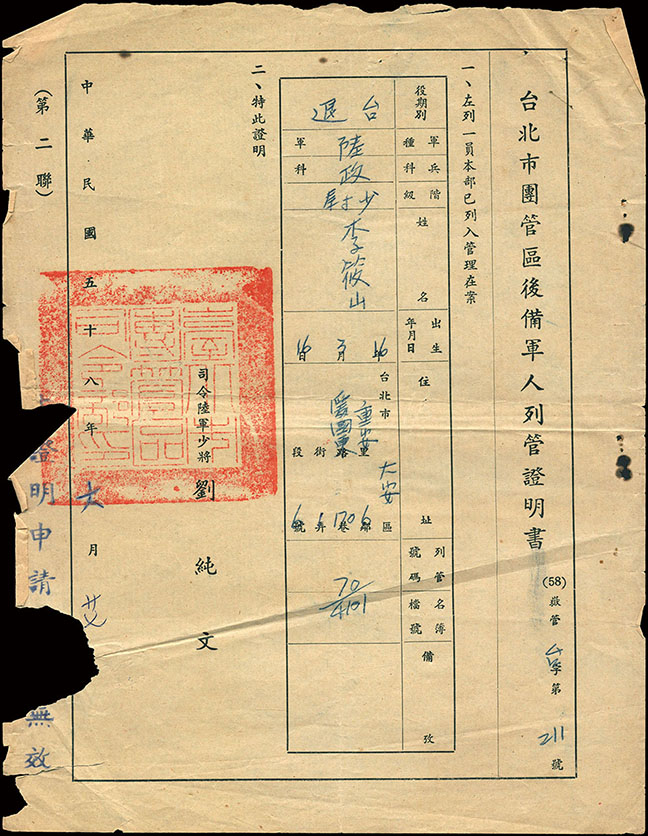 台北市團管區後備軍人列管證明書
(58)嶽管字第211號
一、左列一員本部已列入管理在案
役期別
軍種
兵科
階級
姓名
出生年月日
住址
列管號碼
名簿檔號
備攷
台
退
陸軍
政科
少尉
李筱山
16
台北市
大安區
重安里
6鄰
愛國東路街
段
170巷
1弄
6號
70
4101
二、特此證明
司令陸軍少將劉純文
中華民國五十八年六月廿
(第二聯)
證明申請
無效